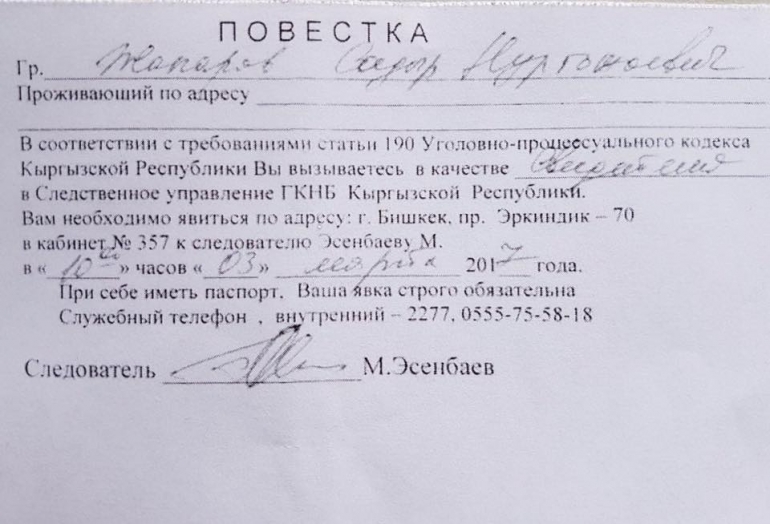 ПОВЕСТКА
Гр. Жапаров Садыр Нургожоевич
Проживающий по адресу
В соответствии с требованиями статьи 190 Уголовно-процессуального кодекса
Кыргызской Республики Вы вызываетесь в качестве свидетеля
в Следственное управление ГКНБ Кыргызской Республики.
Вам необходимо явиться по адресу: г. Бишкек, пр. Эркиндик – 70
в кабинет № 357 к следователю Эсенбаеву М.
в « 10 00 » часов « 03 » марта 2017 года.
При себе иметь паспорт. Ваша явка строго обязательна
Служебный телефон , внутренний – 2277, 0555-75-58-18
Следователь М.Эсенбаев